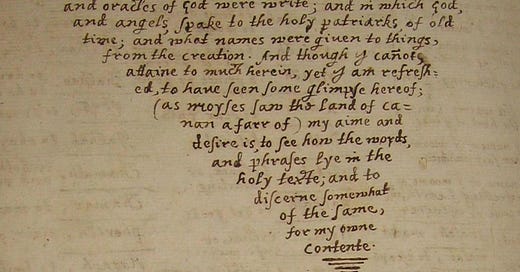 and oracles of God were write; and in which God,
and angels, spake to the holy patriarks, of old
time; and what names were given to things,
from the creation. And though I cañot
attaine to much herein, yet I am refresh-
ed, to have seen some glimpse hereof;
(as moyses saw the land of ca=
nan a farr of) my aime and
desire is, to see how the words,
and phrases lye in the
holy texte; and to
discerne somewhat
of the same,
for my owne
Contente.